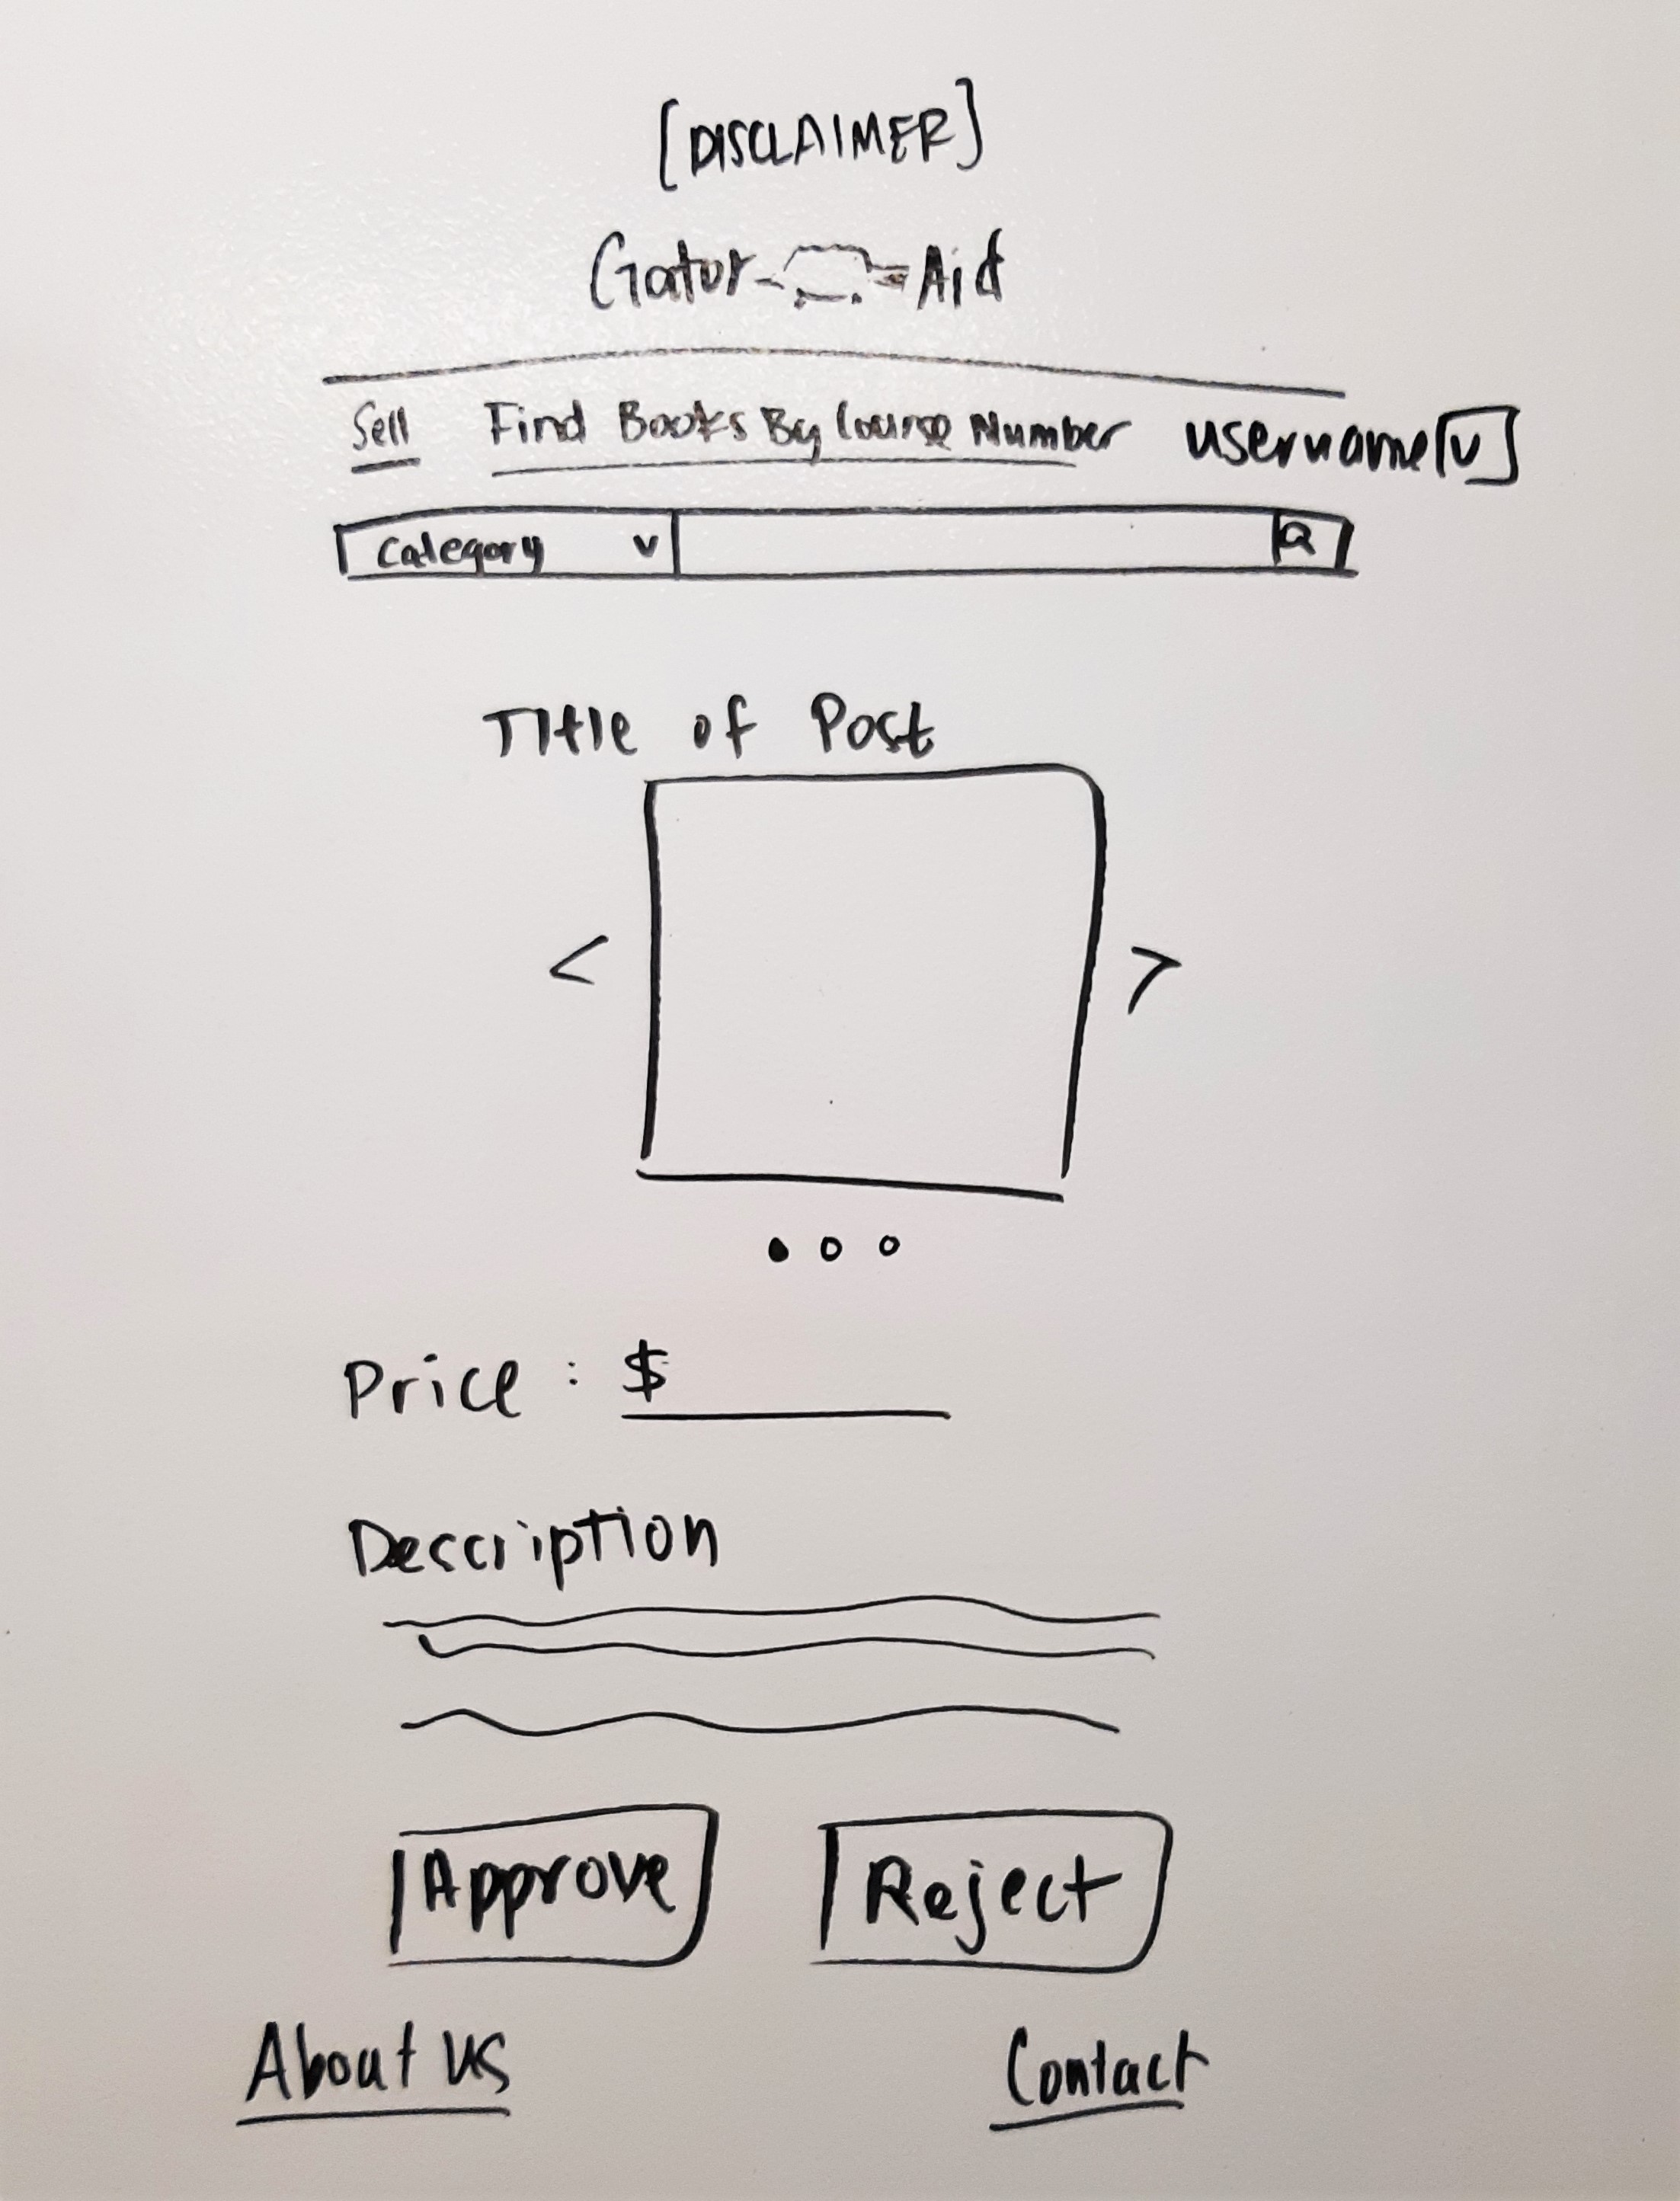 [DISCLAIMER]
Gator Aid
Sell Find Books By Course Number username [v]
Category v
Title of Post
< >
Price : $
Description
Approve Reject
About us Contact